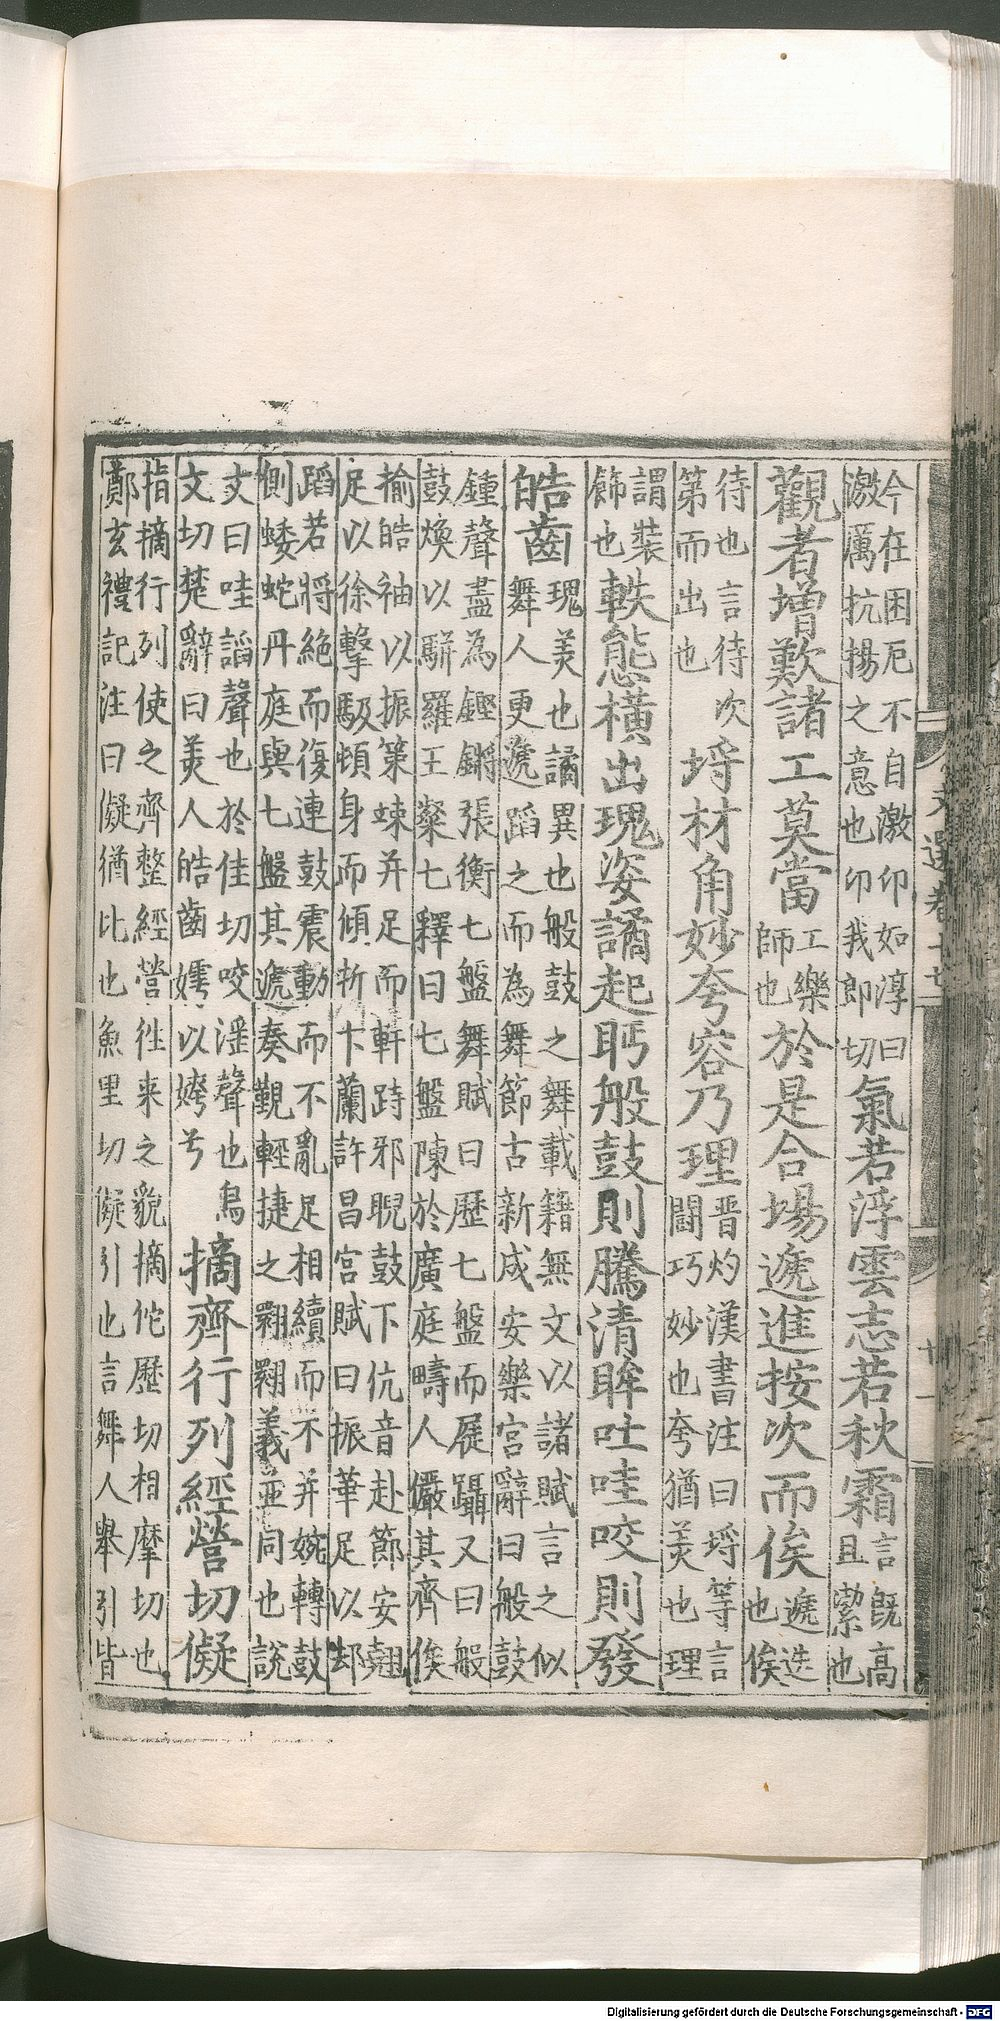 文選卷十七
廿一
今在困厄不自激卬如淳曰
激厲抗揚之意也卬我即切
氣若浮雲志若秋霜
言既高
且潔也
觀者増歎諸工莫當
工樂
師也
於是合場遞進按次而俟
遞迭
也俟
待也言待次
第而出也
埒材角妙夸容乃理
晋灼漢書注曰埒等言
闘巧妙也夸猶羙也理
謂裝
飾也
軼態橫出瑰姿譎起眄般鼓則騰清眸吐哇咬則發
皓齒
瑰羙也譎異也般鼓之舞載籍無文以諸賦言之似
舞人更遞蹈之而為舞節古新成安樂宫辭曰般鼓
鍾聲盡為鏗鏘張衡七盤舞賦曰歷七盤而屣躡又曰般
鼓煥以駢羅王粲七釋曰七盤陳於廣庭疇人儼其齊俟
揄皓袖以振策竦并足而軒跱邪睨鼓下伉音赴節安翹
足以徐擊馺頓身而傾折卞蘭許昌宫賦曰振華足以却
蹈若將絶而復連鼓震動而不亂足相續而不并婉轉鼓
側蜲蛇丹庭與七盤其遞奏觀輕捷之翾翾義並同也説
文曰哇謟聲也於佳切咬淫聲也烏
文切楚辭曰羙人皓齒嫮以姱兮
摘齊行列經營切儗
指摘行列使之齊整經營徃来之貌摘佗歷切相摩切也
鄭玄禮記注曰儗猶比也魚里切儗引也言舞人舉引皆
Digitalisierung gefördert durch die Deutsche Forschungsgemeinschaft - DFG